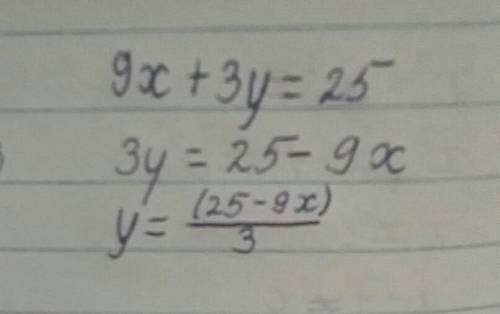 9x + 3y = 25
3y = 25 - 9x
y = (25 - 9x) / 3